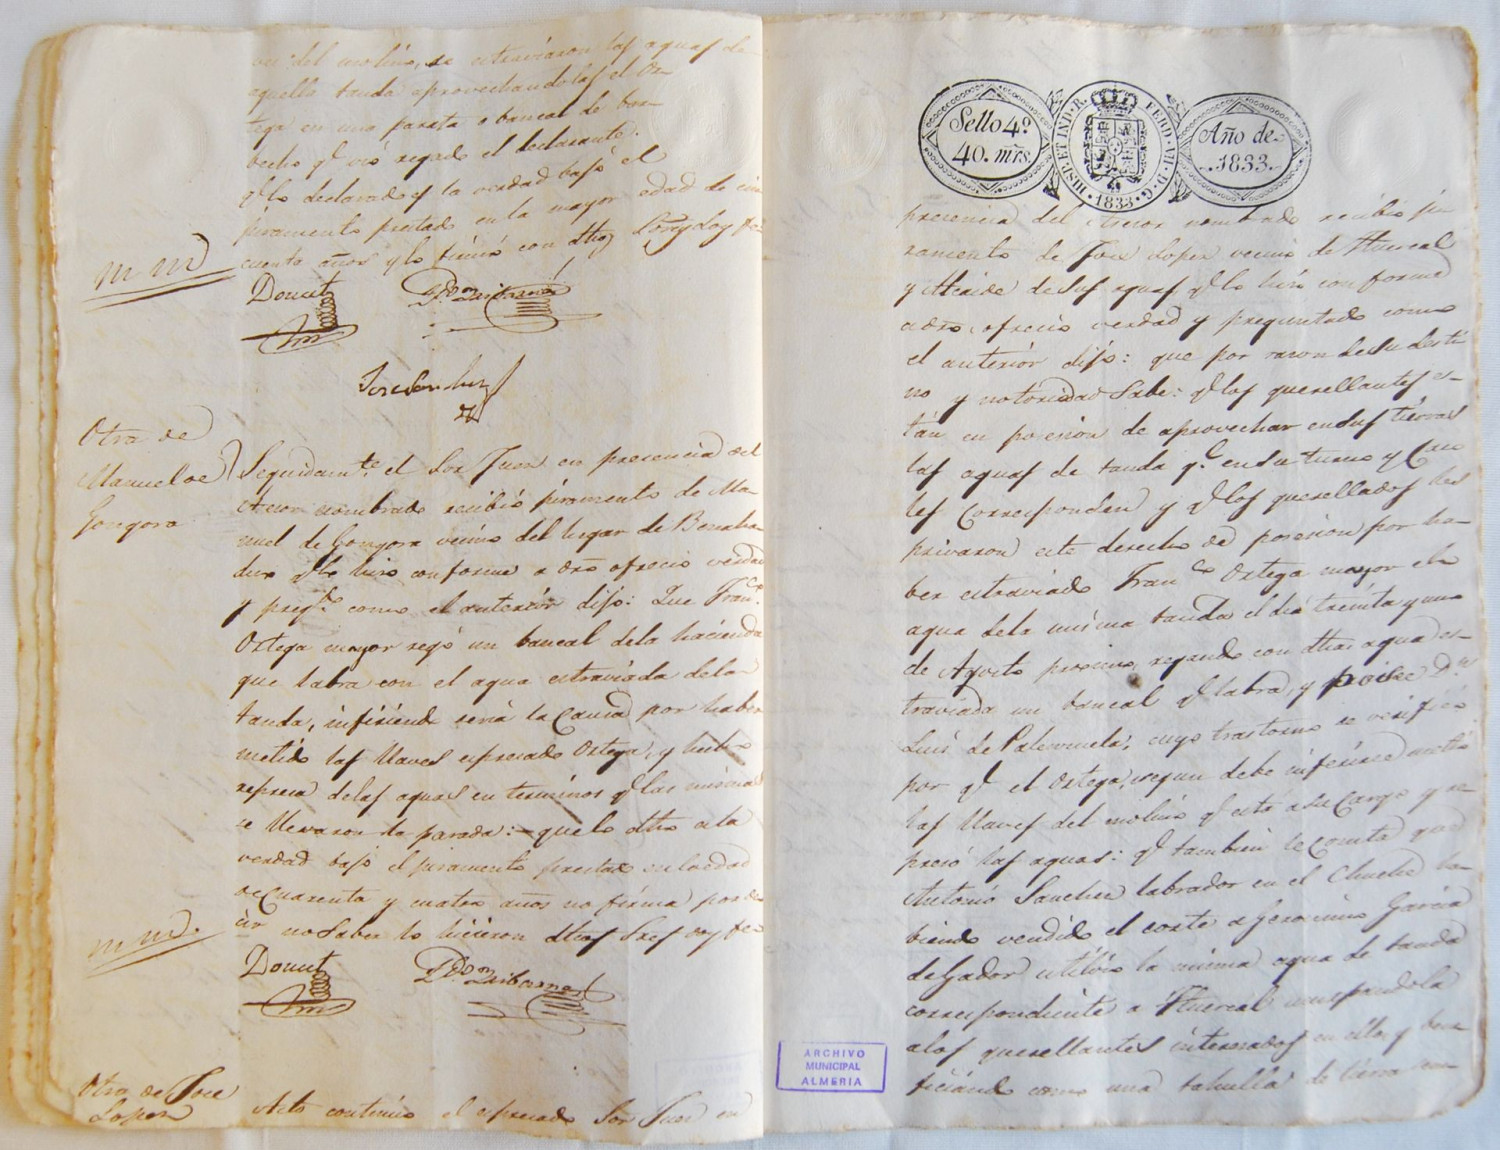 del molino, se estraviaron las aguas de
aquella tanda aprovechandolas el Or-
tega en una parata o bancal de bar-
becho qe vió regado el declarante.
qe lo declarado es la verdad bajo el
juramento prestado en la mayor edad de cin
cuenta años y lo firmó con dho Sor. y doy fe=
Doucet
Otra de
Manuel de
Gongora
Seguidamte. el Sor Juez en presencia del
Acesor nombrado recibió juramento de Ma-
nuel de Gongora vecino del lugar de Benaha-
dux qe lo hizo conforme a dro ofreció verdad
y pregdo. como el anterior dijo: Que Franco.
Ortega mayor regó un bancal de la hacienda
que labra con el agua estraviada de la
tanda, infiriendo sería la causa por haber
metido las llaves espresado Ortega, y hecho
represa de las aguas en terminos qe las mismas
se llevaron la parada: que lo dho es la
verdad bajo el juramento prestado en la edad
de cuarenta y cuatro años no firma por de-
cir no saber lo hicieron dhos Sres doy fe=
Doucet
Otra de Jose
Lopez
Acto continuo el espresado Sor Juez en
Sello 4º
40. mrs.
HISP. ET IND. R. FERD. VII. D. G.
1833
Año de
1833.
presencia del Acesor nombrado recibió ju-
ramento de Jose Lopez vecino de Huercal
y Alcaide de sus aguas qe lo hizo conforme
a dro, ofreció verdad y preguntado como
el anterior dijo: que por razon de su desti-
no y notoriedad sabe: qe los querellantes es-
tán en posesion de aprovechar en sus tierras
las aguas de tanda qe en su turno y
les corresponden y qe los querellados les
privaron este derecho de posesion por ha-
ber estraviado Franco Ortega mayor el
agua de la misma tanda el dia treinta y uno
de Agosto procsimo, regando con dha agua es-
traviada un bancal qe labra, y posee Dn
Luis de Palenzuela, cuyo trastorno se verificó
por qe el Ortega, segun debe inferirse metió
las llaves del molino qe esta a su cargo y re-
presó las aguas: qe tambien le consta que
Antonio Sanchez labrador en el Chuche ha-
biendo vendido el corte a Geronimo Garcia
de Gador utilizó la misma agua de tanda
correspondiente a Huercal usurpandola
a los querellantes interesados en ella, y bene-
ficiando como una tahulla de tierra con
ARCHIVO
MUNICIPAL
ALMERIA